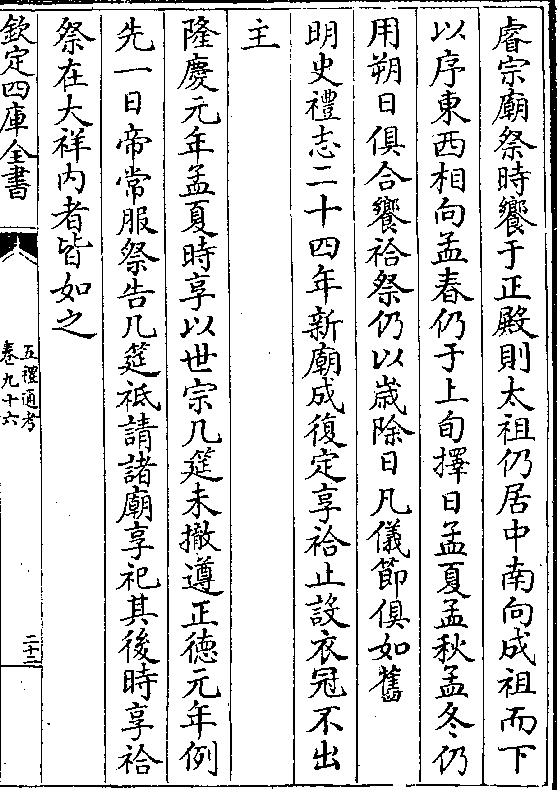 睿宗廟祭時饗于正殿則太祖仍居中南向成祖而下
以序東西相向孟春仍于上旬擇日孟夏孟秋孟冬仍
用朔日俱合饗祫祭仍以歲除日凡儀節俱如舊
明史禮志二十四年新廟成復定享祫止設衣冠不出
主
隆慶元年孟夏時享以世宗几筵未撤遵正德元年例
先一日帝常服祭告几筵祗請諸廟享祀其後時享祫
祭在大祥内者皆如之
欽定四庫全書
五禮通考
卷九十六
二十二